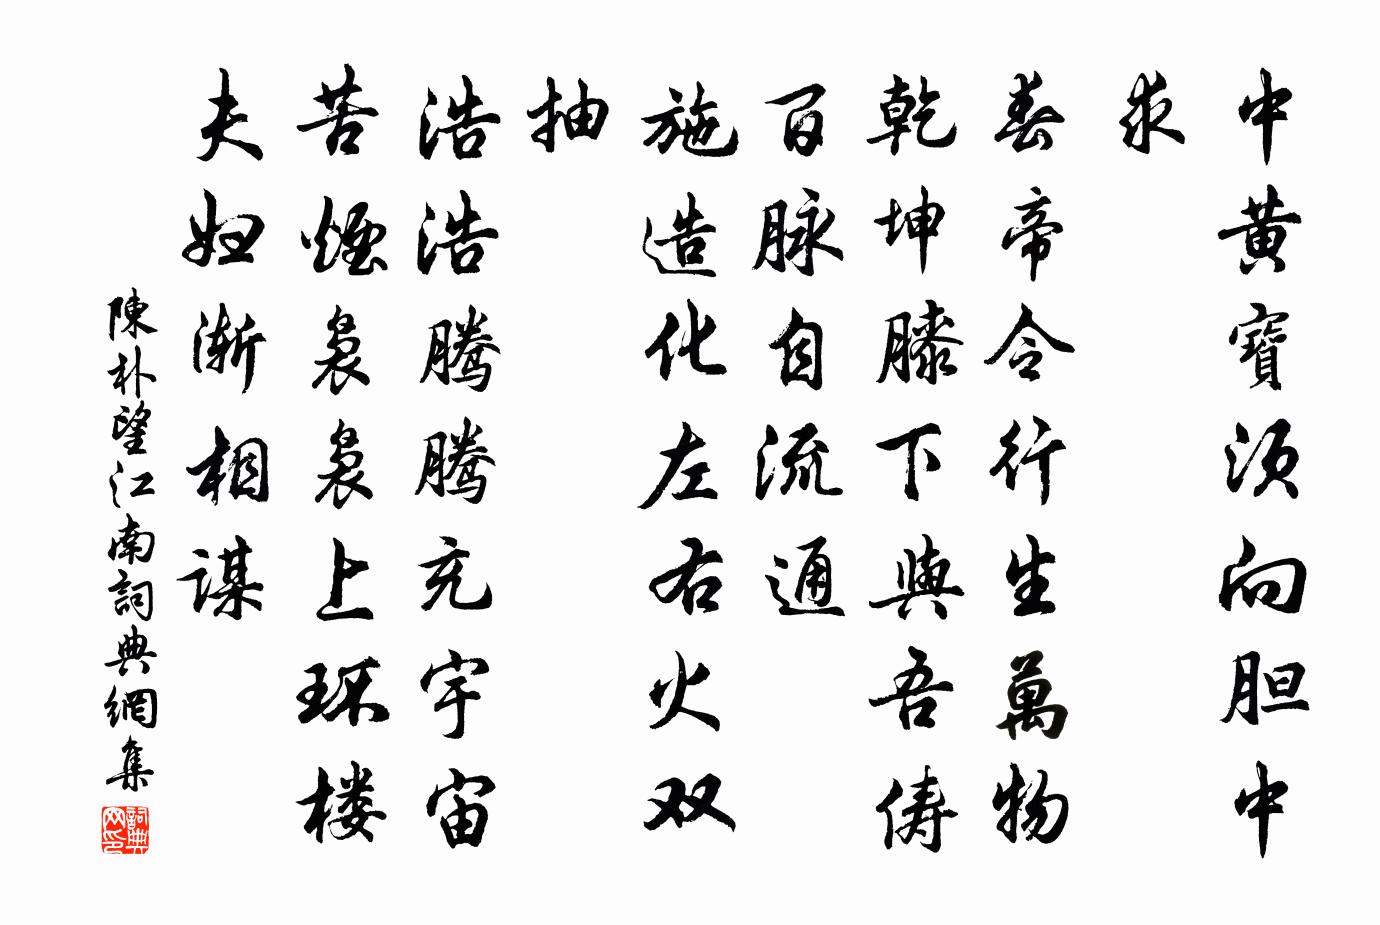 中黄寶須向胆中
求
春帝令行生萬物
乾坤膝下與吾俦
百脉自流通
施造化左右火双
抽
浩浩腾腾充宇宙
苦煙袅袅上环楼
夫妇渐相谋
陳朴望江南詞典網集
詞典
网印